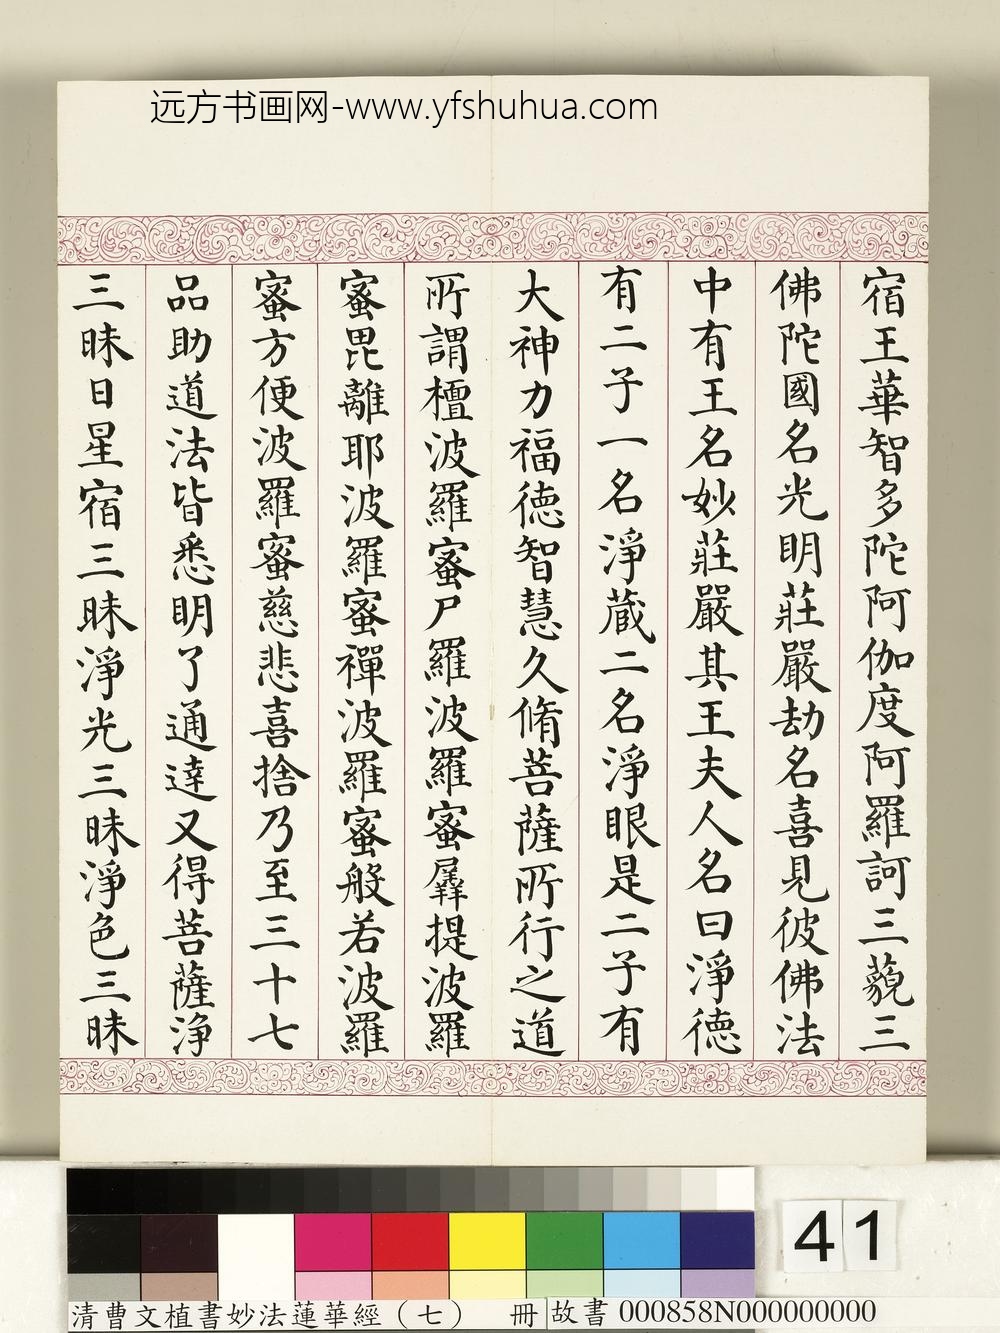 远方书画网-www.yfshuhua.com
宿王華智多陀阿伽度阿羅訶三藐三
佛陀國名光明莊嚴劫名喜見彼佛法
中有王名妙莊嚴其王夫人名曰淨德
有二子一名淨藏二名淨眼是二子有
大神力福德智慧久脩菩薩所行之道
所謂檀波羅蜜尸羅波羅蜜羼提波羅
蜜毘離耶波羅蜜禪波羅蜜般若波羅
蜜方便波羅蜜慈悲喜捨乃至三十七
品助道法皆悉明了通達又得菩薩淨
三昧日星宿三昧淨光三昧淨色三昧
41
清曹文植書妙法蓮華經（七） 冊 故書 000858N000000000